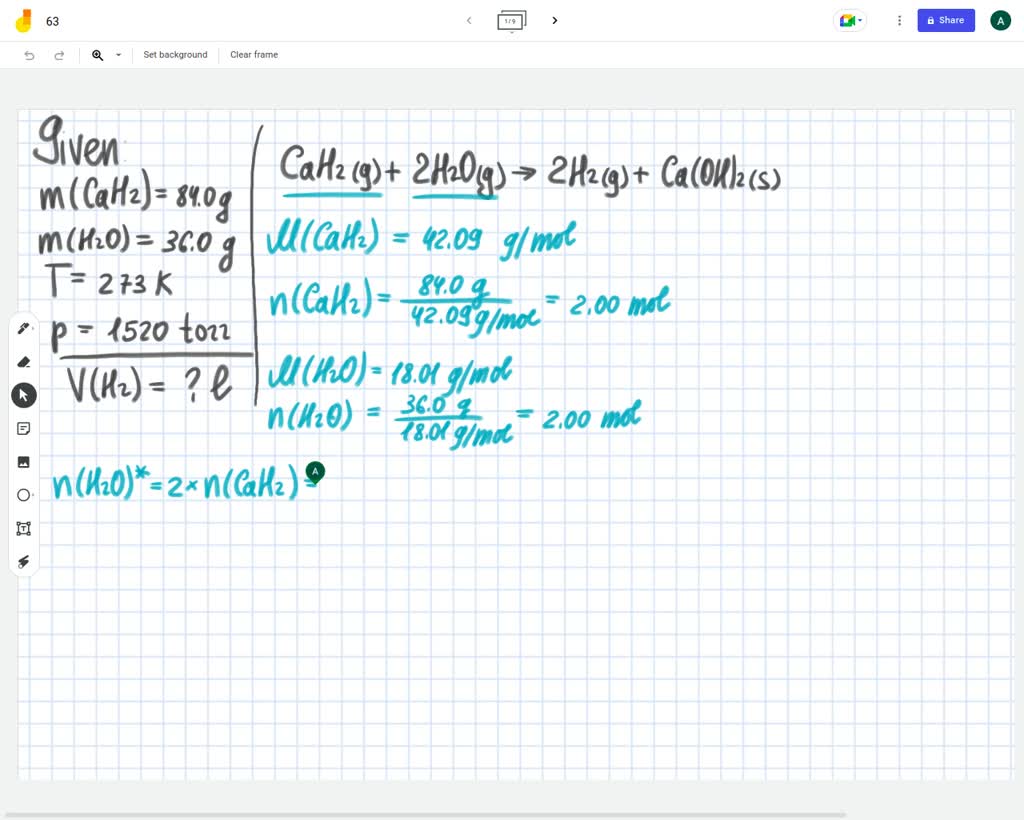 63
1/9
Share
A
Set background
Clear frame
Given:
m(CaH2)= 84.0g
m(H2O) = 36.0 g
T= 273 K
p = 1520 torr
V(H2) = ? l
CaH2 (g) + 2H2O(g) → 2H2(g) + Ca(OH)2(s)
M(CaH2) = 42.09 g/mol
n(CaH2)= 84.0 g / 42.09 g/mol = 2.00 mol
M(H2O)= 18.01 g/mol
n(H2O) = 36.0 g / 18.01 g/mol = 2.00 mol
n(H2O)* = 2 × n(CaH2) =
A